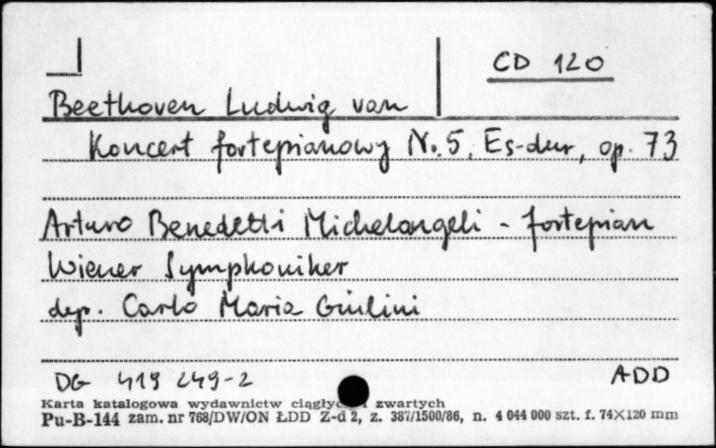 CD 120
Beethoven Ludwig van
Koncert fortepianowy Nr. 5, Es-dur, op. 73
Arturo Benedetti Michelangeli - fortepian
Wiener Symphoniker
dyr. Carlo Maria Giulini
DG 419 249-2 ADD
Karta katalogowa wydawnictw ciągłych i zwartych
Pu-B-144 zam. nr 768/DW/ON ŁDD Z-d 2, z. 387/1500/86, n. 4 044 000 szt. f. 74×120 mm